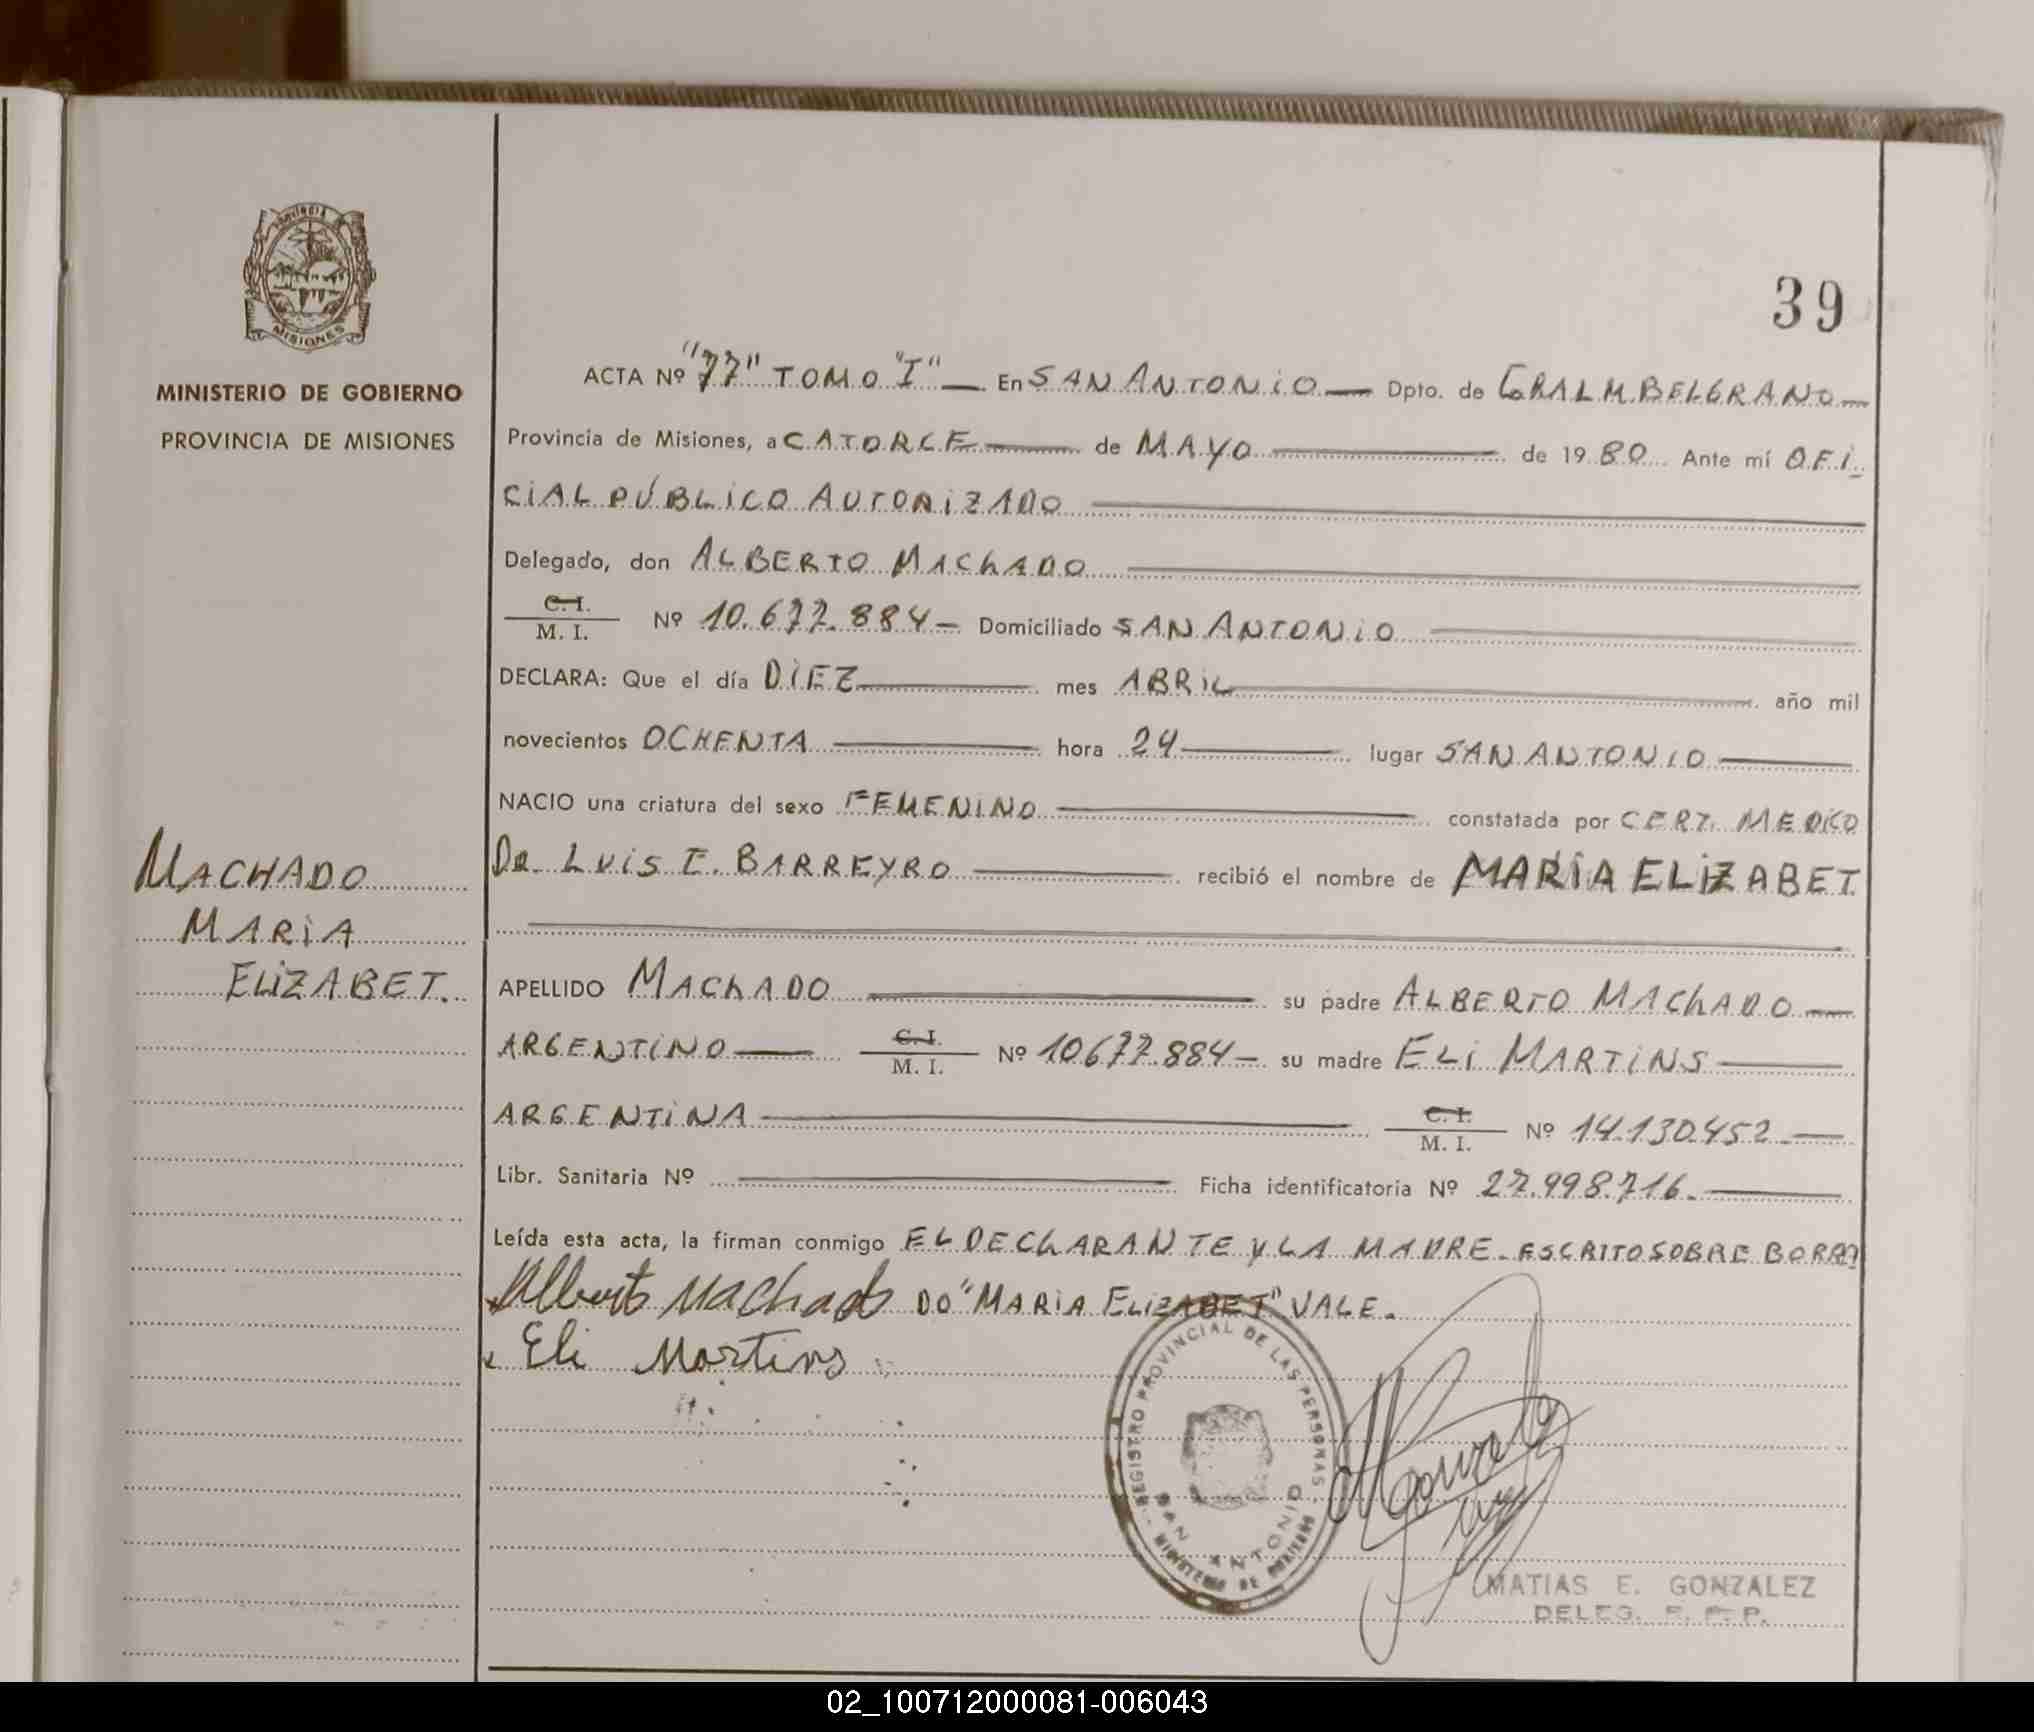 39
MISIONES
MINISTERIO DE GOBIERNO
PROVINCIA DE MISIONES
MACHADO
MARIA
ELIZABET.
ACTA Nº "77" TOMO "I" — En SAN ANTONIO — Dpto. de GRAL M. BELGRANO —
Provincia de Misiones, a CATORCE — de MAYO — de 1980 Ante mí OFI-
CIAL PÚBLICO AUTORIZADO —
Delegado, don ALBERTO MAChADO —
C. I.
M. I. Nº 10.677.884 — Domiciliado SAN ANTONIO —
DECLARA: Que el día DIEZ — mes ABRIL — año mil
novecientos OCHENTA — hora 24 — lugar SAN ANTONIO —
NACIO una criatura del sexo FEMENINO — constatada por CERT. MEDICO
DR. LUIS E. BARREYRO — recibió el nombre de MARIA ELIZABET
—
APELLIDO MAChADO — su padre ALBERTO MAChADO —
ARGENTINO — C. I.
M. I. Nº 10677.884 — su madre ELI MARTINS —
ARGENTINA — C. I.
M. I. Nº 14.130.452 —
Libr. Sanitaria Nº — Ficha identificatoria Nº 27.998.716. —
Leída esta acta, la firman conmigo EL DECLARANTE Y LA MADRE - ESCRITO SOBRE BORRA
Alberto Machado DO "MARIA ELIZABET" VALE.
Eli Martins
REGISTRO PROVINCIAL DE LAS PERSONAS
SAN ANTONIO
MINISTERIO DE GOBIERNO
MATIAS E. GONZALEZ
DELEG.
02_100712000081-006043